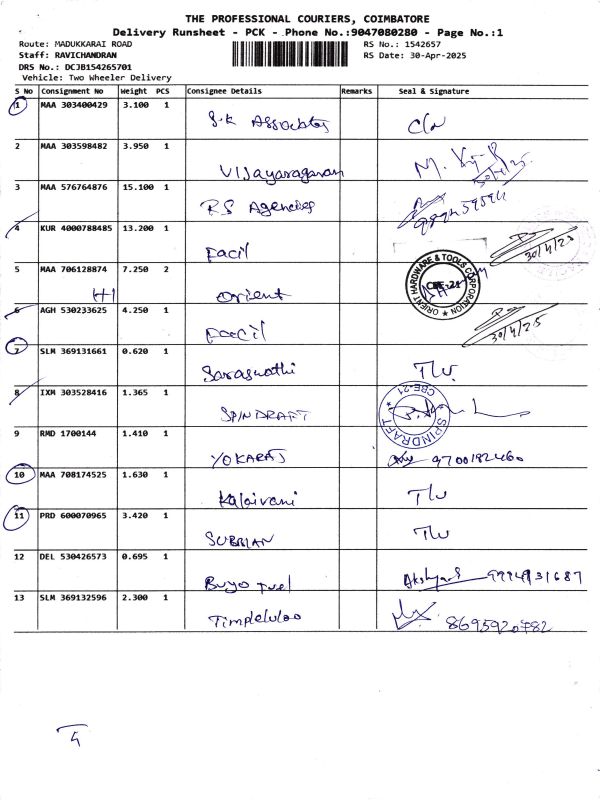 THE PROFESSIONAL COURIERS, COIMBATORE
Delivery Runsheet - PCK - Phone No.:9047080280 - Page No.:1
Route: MADUKKARAI ROAD RS No.: 1542657
Staff: RAVICHANDRAN RS Date: 30-Apr-2025
DRS No.: DCJB154265701
Vehicle: Two Wheeler Delivery
S No Consignment No Weight PCS Consignee Details Remarks Seal & Signature
1 MAA 303400429 3.100 1 S.K Associates
2 MAA 303598482 3.950 1 VIJayaragavan
3 MAA 576764876 15.100 1 RS Agencies
4 KUR 4000788485 13.200 1 Facil 30/4/25
5 MAA 706128874 7.250 2 Orient ORIENT HARDWARE & TOOLS CORPORATION CBE-21
6 AGH 530233625 4.250 1 Facil 30/4/25
7 SLM 369131661 0.620 1 Saraswathi
8 IXM 303528416 1.365 1 SPINDRAFT SPINDRAFT CBE-21
9 RMD 1700144 1.410 1 YOKARAJ 9700182460
10 MAA 708174525 1.630 1 Kalaivani
11 PRD 600070965 3.420 1 SUBBIAN
12 DEL 530426573 0.695 1
13 SLM 369132596 2.300 1 8695920782